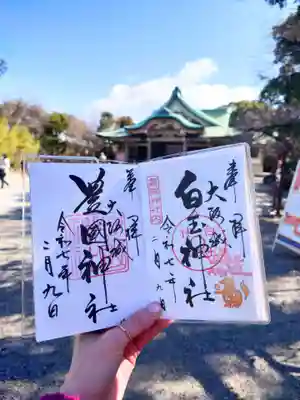 奉拝
大阪城
白玉神社
令和七年
二月九日
奉拝
大阪城
豊國神社
令和七年
二月九日